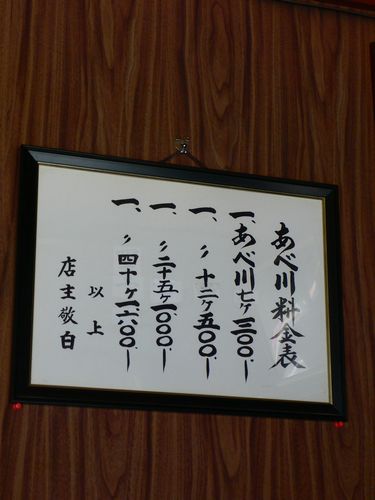 あべ川料金表
一、あべ川七ヶ三〇〇
一、〃十二ヶ五〇〇
一、〃二十五ヶ一〇〇〇
一、〃四十ヶ一六〇〇
以上
店主敬白